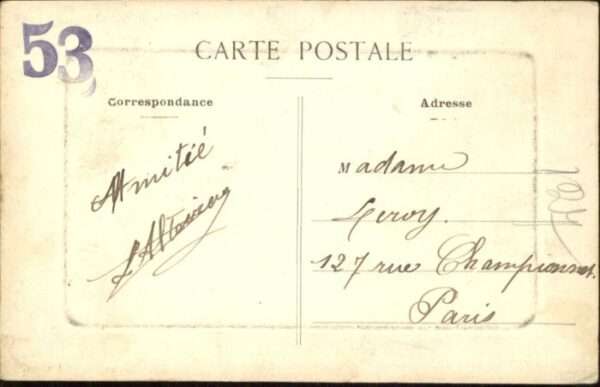 53
CARTE POSTALE
Correspondance
Adresse
Amitié
Madame
Leroy.
127 rue Championnet.
Paris